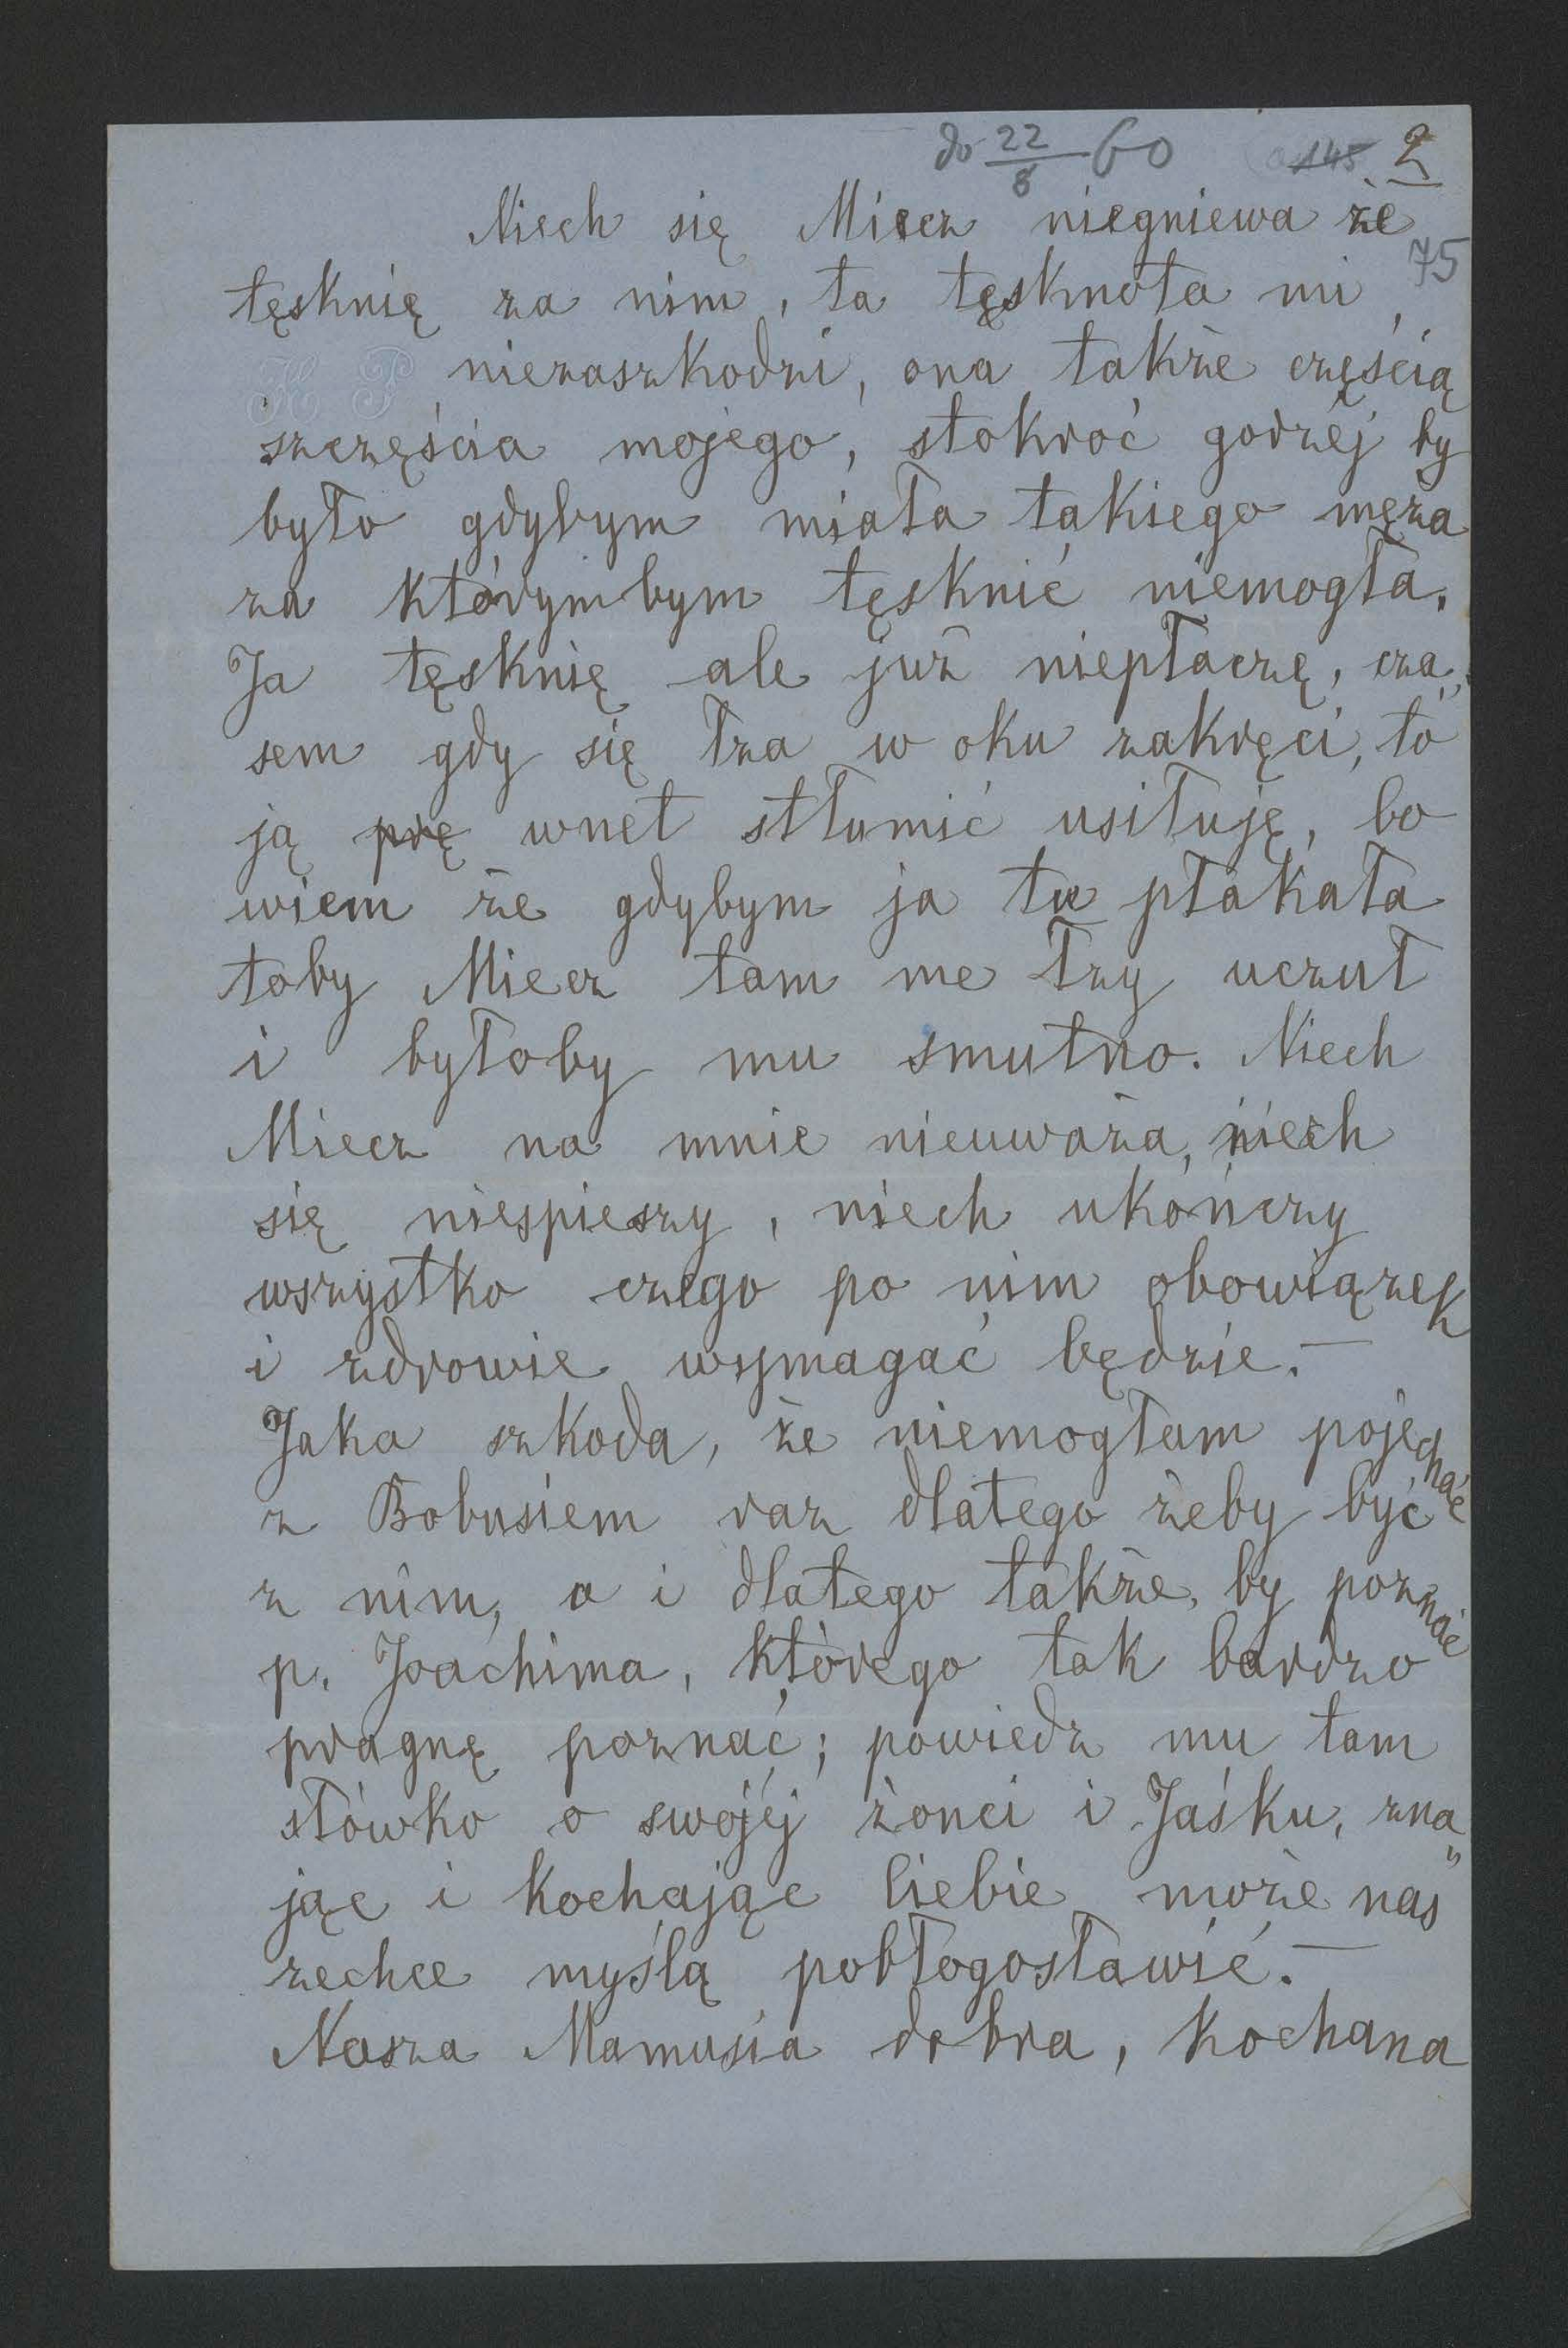 do 22/8 60 145 2
Niech się Miecz niegniewa że
75
tęsknię za nim, ta tęsknota mi
H P niezaszkodzi, ona także częścią
szczęścia mojego, stokroć gorzéj by
było gdybym miała takiego męża
za którymbym tęsknić niemogła.
Ja tęsknię ale już niepłaczę, cza„
sem gdy się łza w oku zakręci, to
ją prę wnet stłumić usiłuję, bo
wiem że gdybym ja tu płakała
toby Miecz tam me łzy uczuł
i byłoby mu smutno. Niech
Miecz na mnie nieuważa, niech
się niespieszy, niech ukończy
wszystko czego po nim obowiązek
i zdrowie wymagać będzie. —
Jaka szkoda, że niemogłam pojechać
z Bobusiem raz dlatego żeby być
z nim, a i dlatego także, by poznać
p. Joachima, którego tak bardzo
pragnę poznać; powiedz mu tam
słówko o swojéj żonci i Jaśku, zna„
jąc i kochając Ciebie może nas
zechce myślą pobłogosławić. —
Nasza Mamusia dobra, kochana